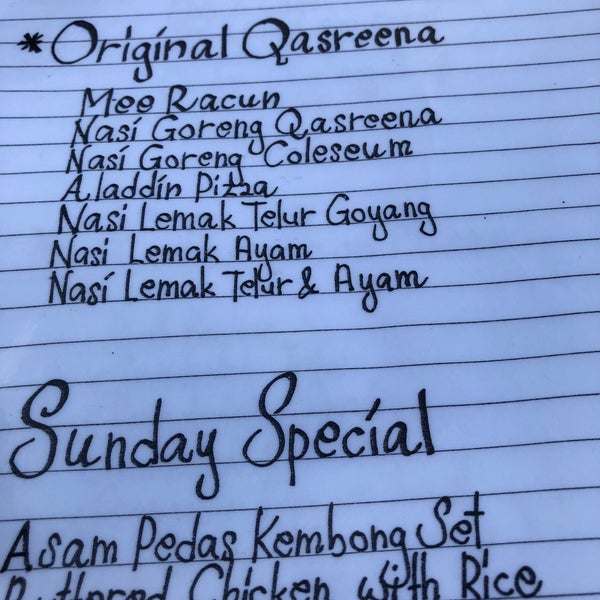 * Original Qasreena
Mee Racun
Nasi Goreng Qasreena
Nasi Goreng Coleseum
Aladdin Pizza
Nasi Lemak Telur Goyang
Nasi Lemak Ayam
Nasi Lemak Telur & Ayam
Sunday Special
Asam Pedas Kembong Set
Buttered Chicken with Rice